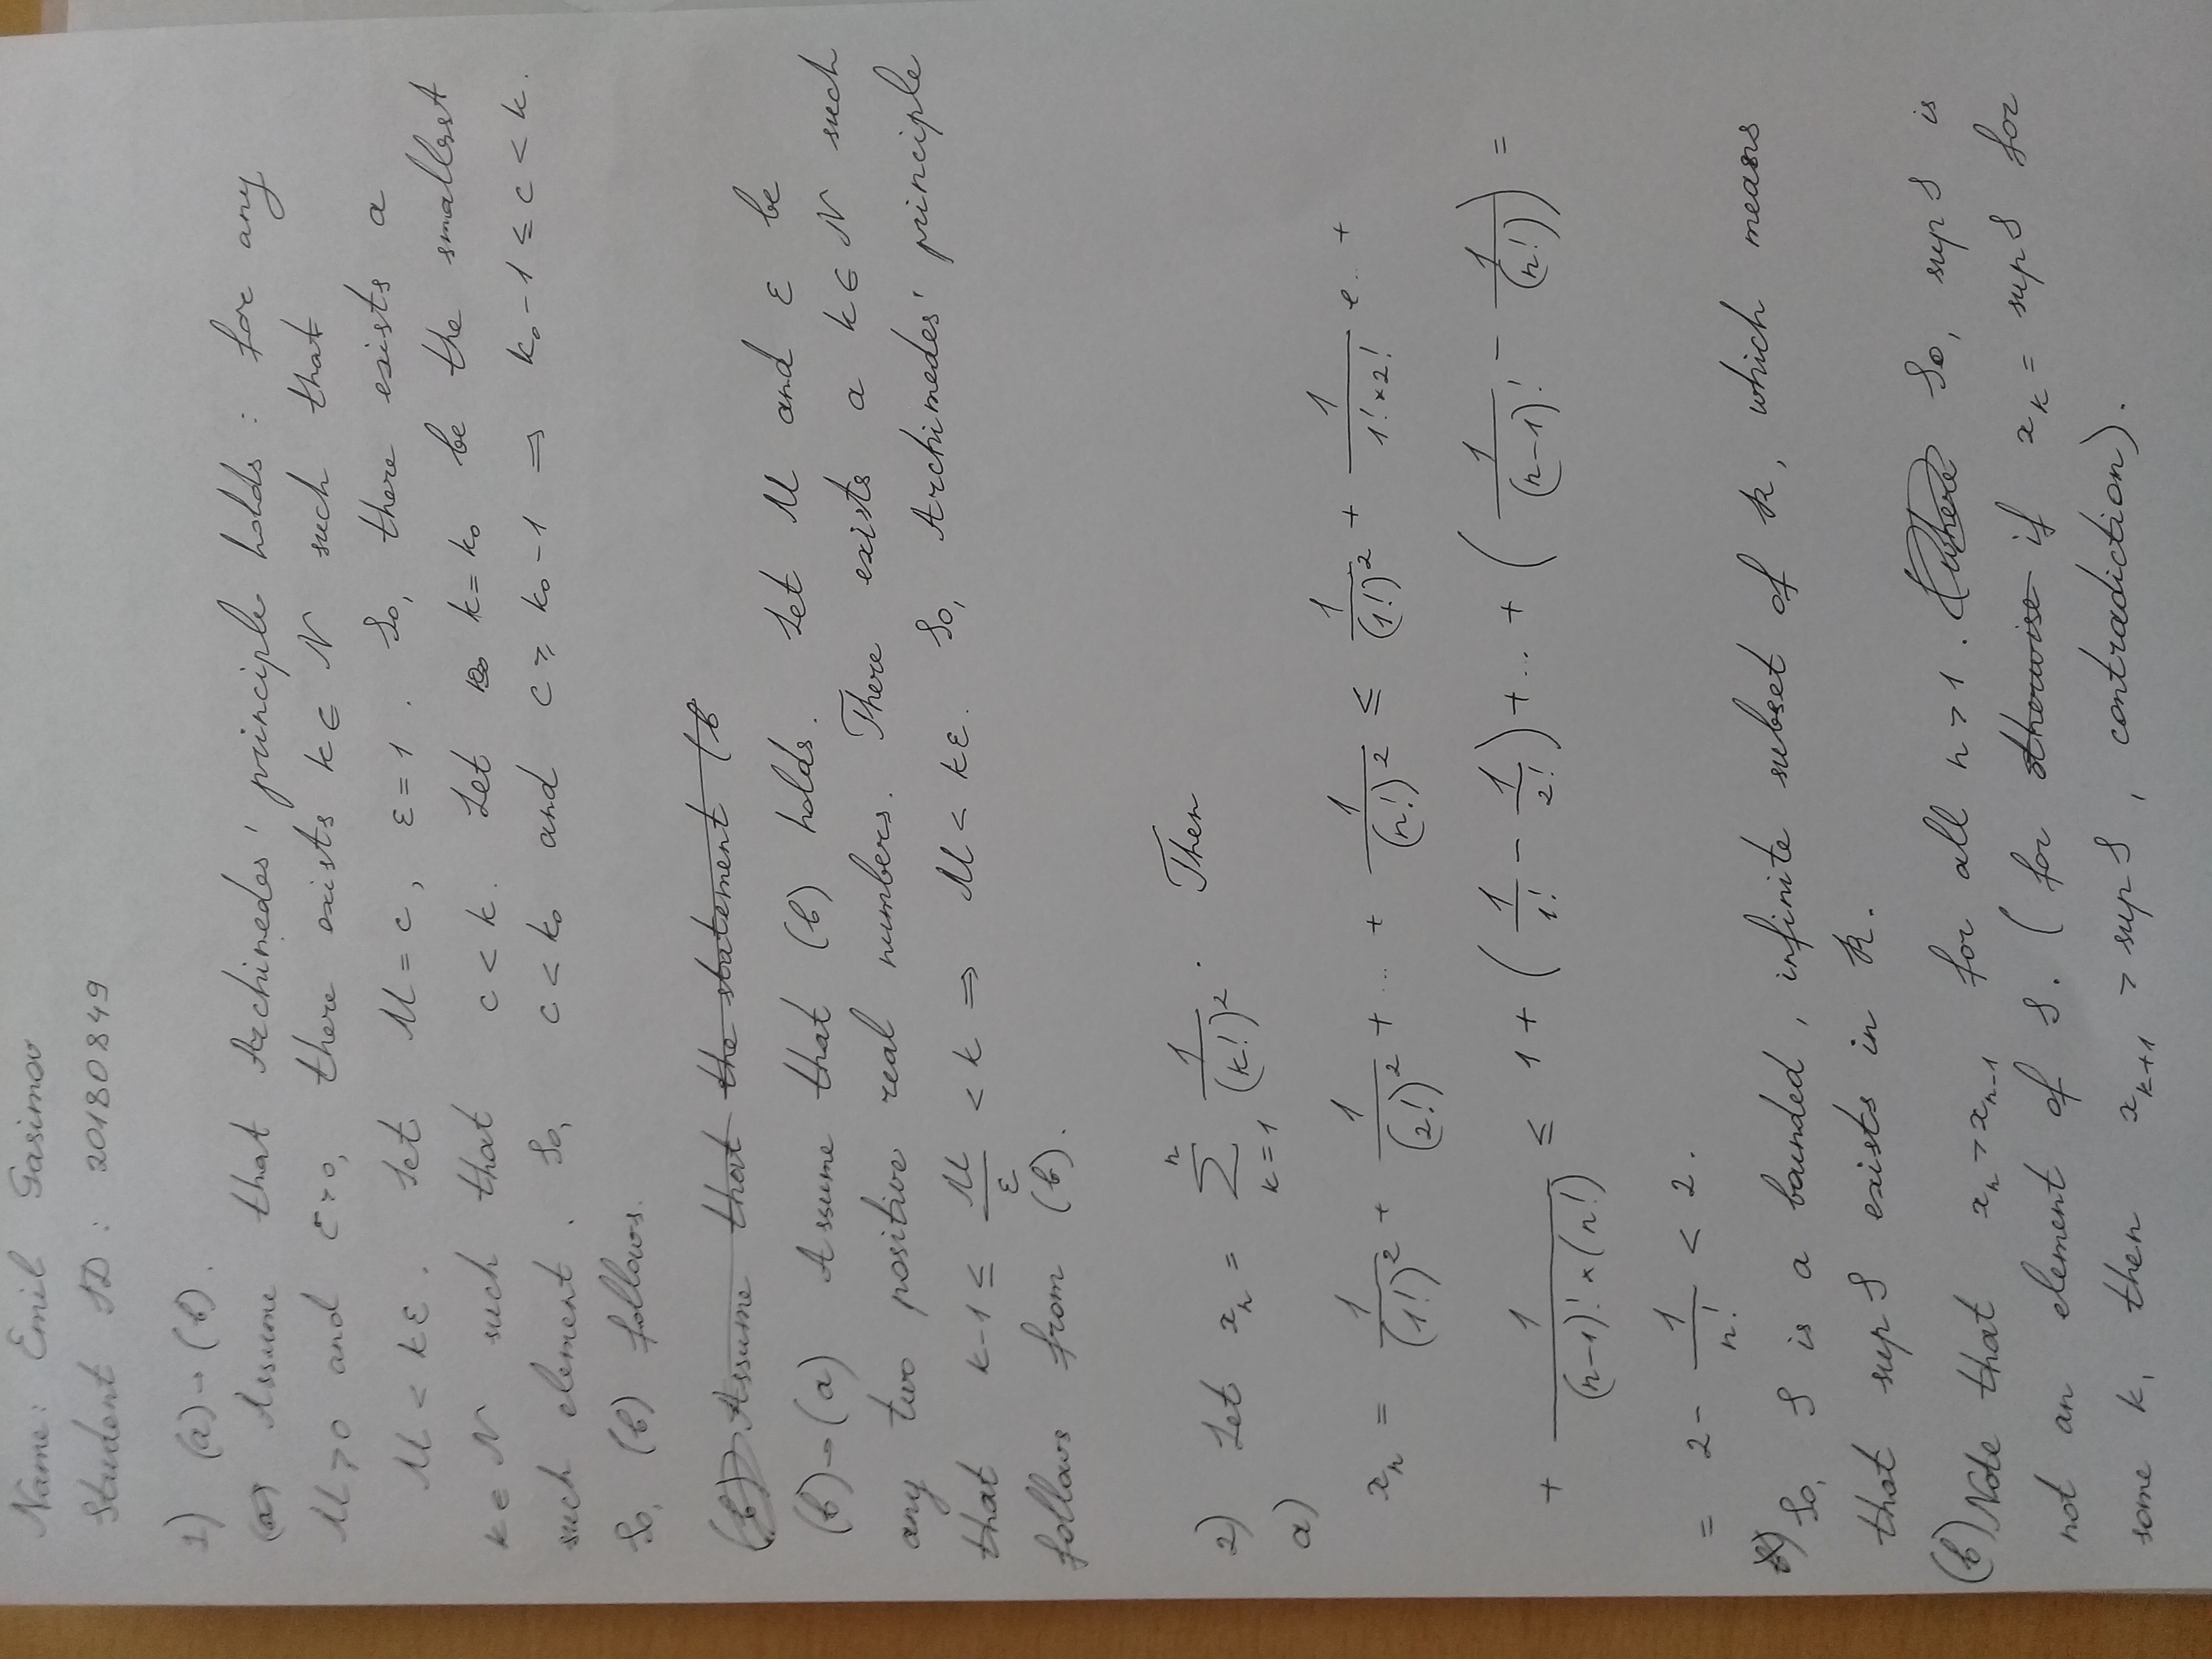 Name: Emil Gasimov
Student ID: 20180849
1) (a)→(b).
(a) Assume that Archimedes' principle holds: for any
M>0 and ε>0, there exists k∈N such that
M < kε. Let M=c, ε=1. So, there exists a
k∈N such that c<k. Let k=k₀ be the smallest
such element. So, c<k₀ and c≥k₀-1 ⇒ k₀-1≤c<k.
So, (b) follows.
(b) Assume that the statement (b
(b)→(a) Assume that (b) holds. Let M and ε be
any two positive real numbers. There exists a k∈N such
that k-1 ≤ M/ε < k ⇒ M < kε. So, Archimedes' principle
follows from (b).
2) Let xₙ = ∑_{k=1}^{n} 1/(k!)². Then
a)
xₙ = 1/(1!)² + 1/(2!)² + ... + 1/(n!)² ≤ 1/(1!)² + 1/(1!×2!) ... +
+ 1/((n-1)!×(n!)) ≤ 1 + (1/1! - 1/2!) + ... + (1/(n-1)! - 1/(n!)) =
= 2 - 1/n! < 2.
So, S is a bounded, infinite subset of R, which means
that sup S exists in R.
(b) Note that xₙ > xₙ₋₁ for all n>1. (where So, sup S is
not an element of S. (for otherwise if x_k = sup S for
some k, then x_{k+1} > sup S, contradiction).